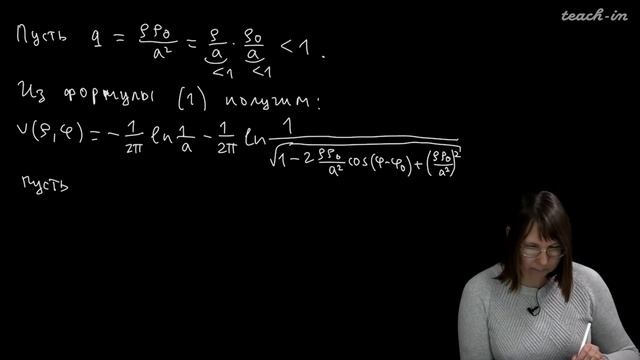 teach-in
Пусть q = ρρ₀/a² = ρ/a · ρ₀/a < 1.
<1 <1
Из формулы (1) получим:
v(ρ,φ) = -1/2π ln 1/a - 1/2π ln 1/√(1-2 ρρ₀/a² cos(φ-φ₀)+(ρρ₀/a²)²)
пусть